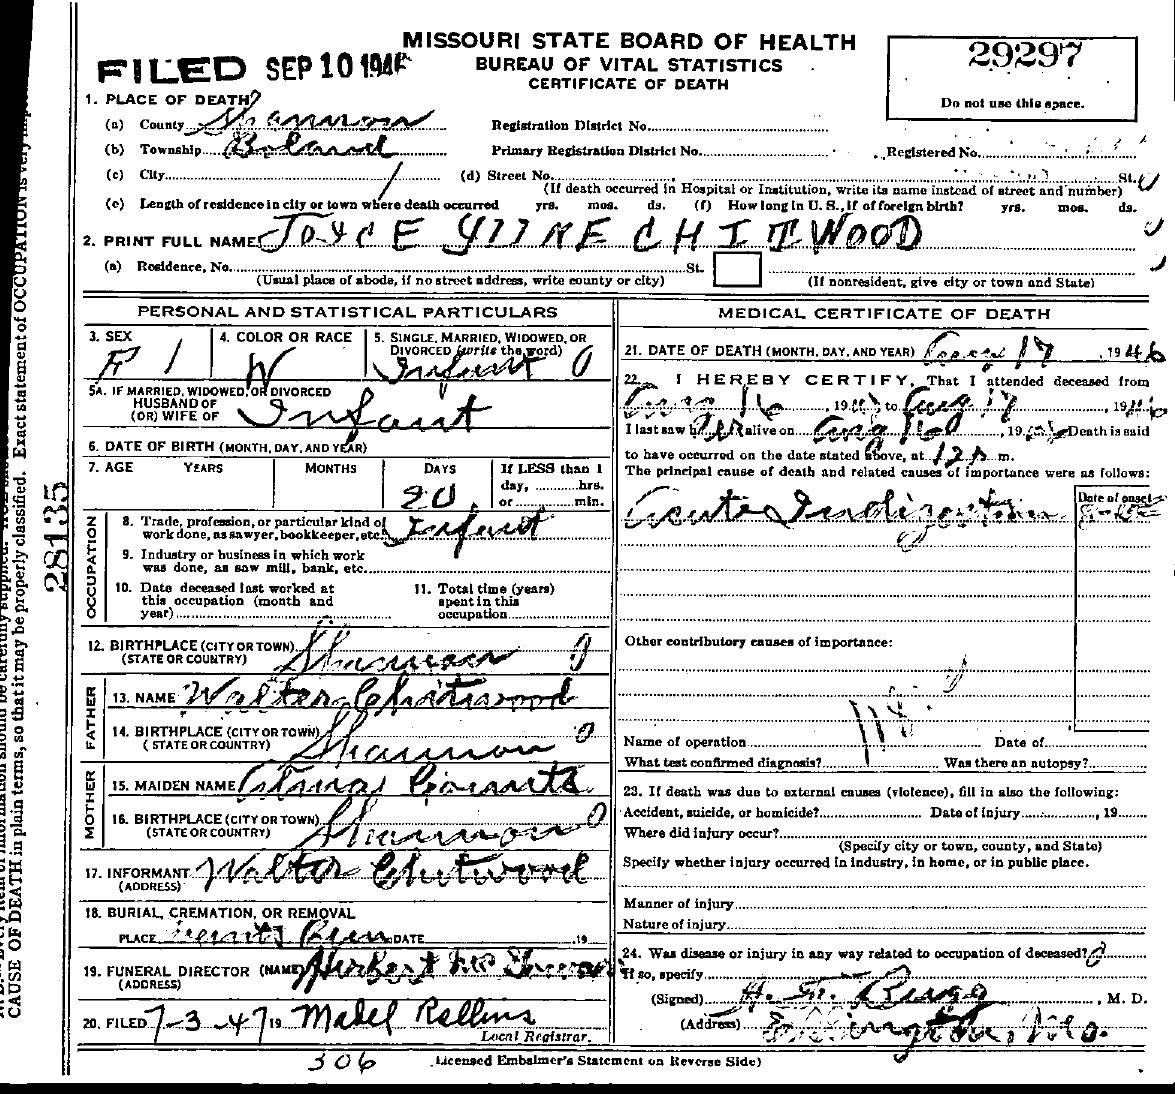 MISSOURI STATE BOARD OF HEALTH
BUREAU OF VITAL STATISTICS
CERTIFICATE OF DEATH
FILED SEP 10 194
29297
Do not use this space.
1. PLACE OF DEATH
(a) County Shannon Registration District No.
(b) Township Boland Primary Registration District No. Registered No.
(c) City (d) Street No. St.
(If death occurred in Hospital or Institution, write its name instead of street and number)
(e) Length of residence in city or town where death occurred yrs. mos. ds. (f) How long in U. S., if of foreign birth? yrs. mos. ds.
2. PRINT FULL NAME JOYCE CHITWOOD
(a) Residence, No. St.
(Usual place of abode, if no street address, write county or city) (If nonresident, give city or town and State)
PERSONAL AND STATISTICAL PARTICULARS
3. SEX F 1
4. COLOR OR RACE W
5. SINGLE, MARRIED, WIDOWED, OR
DIVORCED (write the word)
Infant 0
5A. IF MARRIED, WIDOWED, OR DIVORCED
HUSBAND OF
(OR) WIFE OF Infant
6. DATE OF BIRTH (MONTH, DAY, AND YEAR)
7. AGE YEARS MONTHS DAYS If LESS than 1
day, hrs.
or min.
20
OCCUPATION
8. Trade, profession, or particular kind of
work done, as sawyer, bookkeeper, etc. Infant
9. Industry or business in which work
was done, as saw mill, bank, etc.
10. Date deceased last worked at
this occupation (month and
year)
11. Total time (years)
spent in this
occupation
12. BIRTHPLACE (CITY OR TOWN) Shannon 0
(STATE OR COUNTRY)
FATHER
13. NAME Walter Chitwood
14. BIRTHPLACE (CITY OR TOWN) Shannon 0
(STATE OR COUNTRY)
MOTHER
15. MAIDEN NAME Counts
16. BIRTHPLACE (CITY OR TOWN) Shannon 0
(STATE OR COUNTRY)
17. INFORMANT Walter Chitwood
(ADDRESS)
18. BURIAL, CREMATION, OR REMOVAL
PLACE DATE 19
19. FUNERAL DIRECTOR (NAME) Herbert
(ADDRESS)
20. FILED 7-3-47 19 Mabel Rollins
Local Registrar.
MEDICAL CERTIFICATE OF DEATH
21. DATE OF DEATH (MONTH, DAY, AND YEAR) Aug 17, 1946
22. I HEREBY CERTIFY, That I attended deceased from
Aug 16 19 to Aug 17 1946
I last saw her alive on Aug 16, 19 Death is said
to have occurred on the date stated above, at 12 m.
The principal cause of death and related causes of importance were as follows:
Date of onset
Acute Indigestion
Other contributory causes of importance:
Name of operation Date of
What test confirmed diagnosis? Was there an autopsy?
23. If death was due to external causes (violence), fill in also the following:
Accident, suicide, or homicide? Date of injury, 19
Where did injury occur?
(Specify city or town, county, and State)
Specify whether injury occurred in industry, in home, or in public place.
Manner of injury
Nature of injury
24. Was disease or injury in any way related to occupation of deceased? 0
If so, specify
(Signed) , M. D.
(Address) Ellington, Mo.
306 Licensed Embalmer's Statement on Reverse Side)
28135
CAUSE OF DEATH in plain terms, so that it may be properly classified. Exact statement of OCCUPATION is very